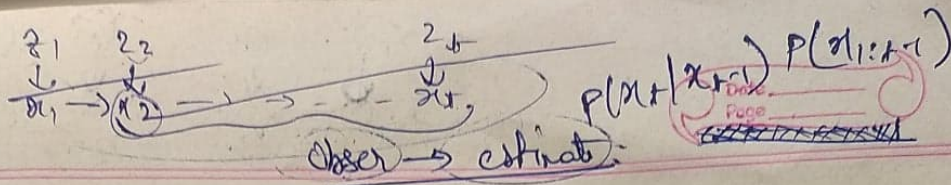 z1 z2 zt
↓ ↓ ↓
x1 → x2 → → - - - xt, p(xt|xt-1) p(x1:t-1)
Date
Page
Obser → estimate: